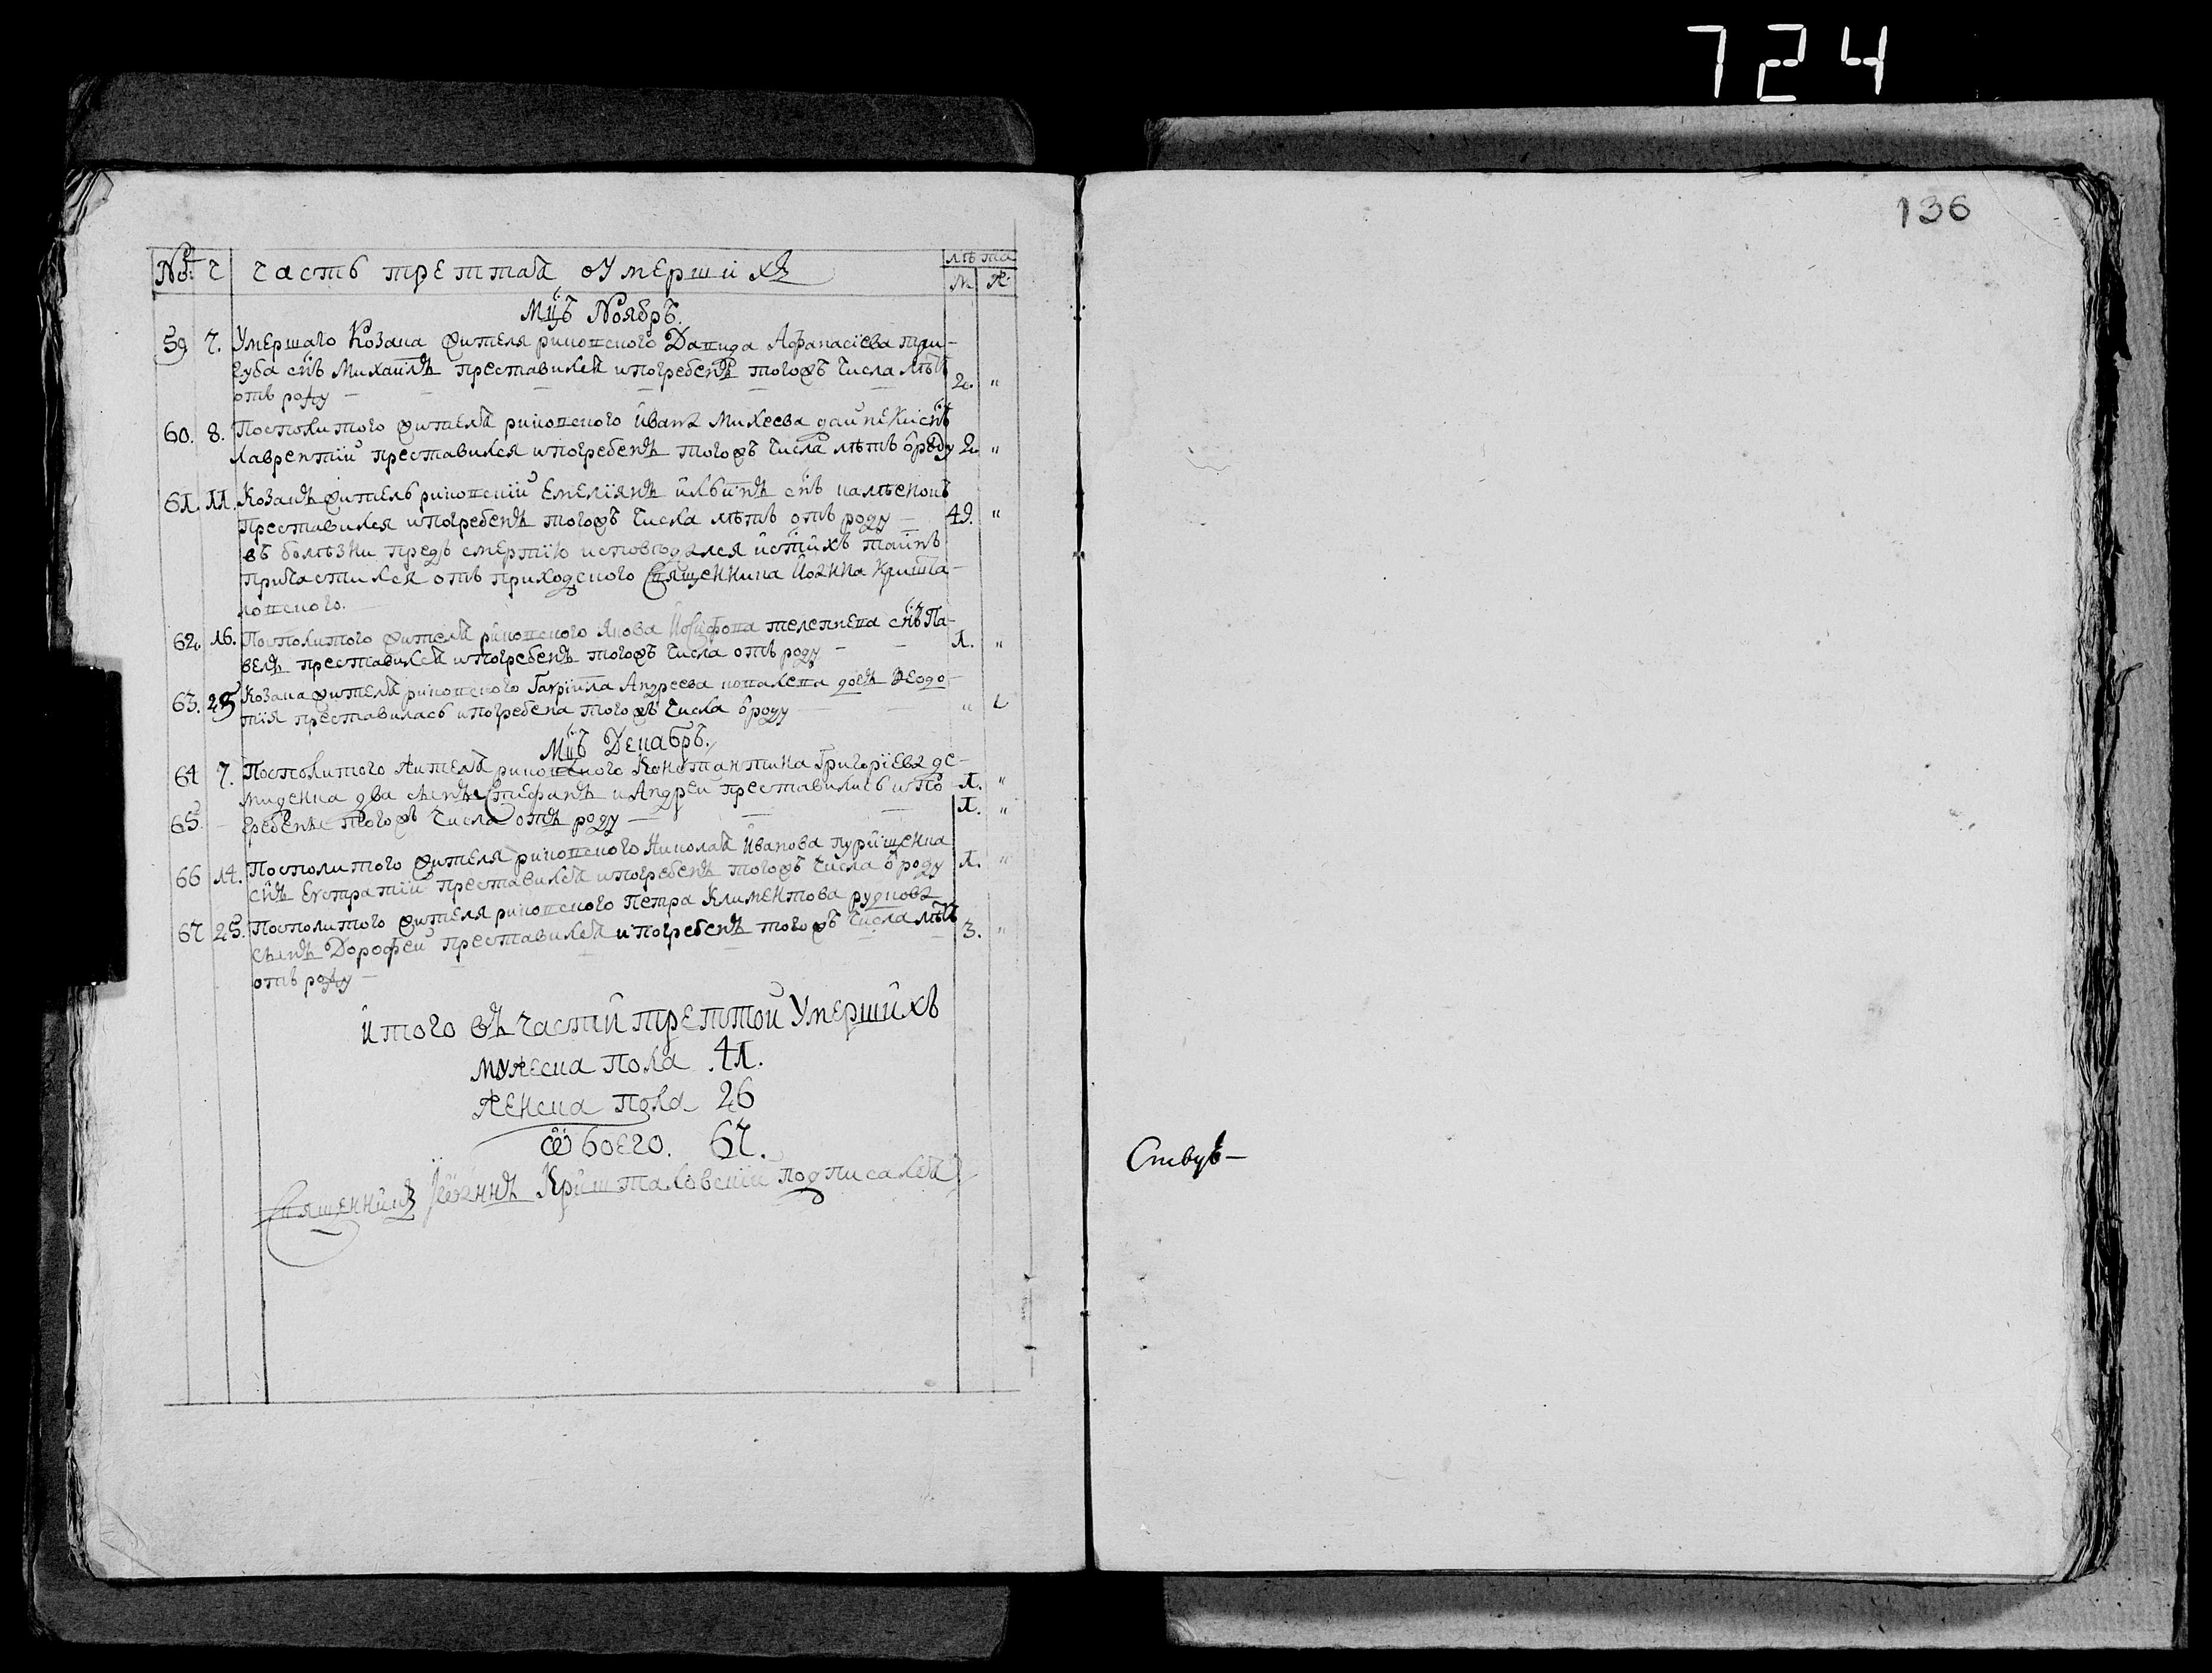 724
136
№ ч Часть третта́я оумершихъ лѣта
м ж
Мц҃ъ Ноябръ.
59 7. Умершаго Козака жителя риковского Давида Афанасїева три-
губа сн҃ъ Михаилъ преставился и погребенъ тогожъ числа лѣтъ
отъ роду — 2. "
60. 8. Посполитого жителя риковского Ивана Михеева сн҃ъ
Лаврентїй преставился и погребенъ тогожъ числа лѣтъ ѿ роду 2. "
61. 11. Козакъ житель риковскїй Емелїянъ сн҃ъ
преставился и погребенъ тогожъ числа лѣтъ отъ роду — 49. "
въ болѣзни предъ смертїю исповѣдался и ст҃ихъ таинъ
причастился отъ приходского Священника Иоанна Кришта-
ловского.
62. 16. Посполитого жителя риковского Якова Иосифова телепнева сн҃ъ Па-
велъ преставился и погребенъ тогожъ числа отъ роду — 1. "
63. 25 Козака жителя риковского Гаврїила Андреева ковалева дочь Феодо-
тїя преставилась и погребена тогожъ числа ѿ роду " 1
Мц҃ъ Декабръ.
64 7. Посполитого жителя риковского Константина Григорїева де-
миденка два сына Стефанъ и Андрей преставились и по- 1. "
65. гребены тогожъ числа отъ роду — 1. "
66 14. Посполитого жителя риковского Николая Иванова пурищенка
сн҃ъ Евстратїй преставился и погребенъ тогожъ числа ѿ роду 1. "
67 25. Посполитого жителя риковского Петра Климентова рудкова
сынъ Дорофей преставился и погребенъ тогожъ числа лѣтъ
отъ роду — 3. "
Итого въ части третой Умершихъ
мужеска пола 41.
женска пола 26
обоего. 67.
Священникъ Іоаннъ Кришталовскїй подписался